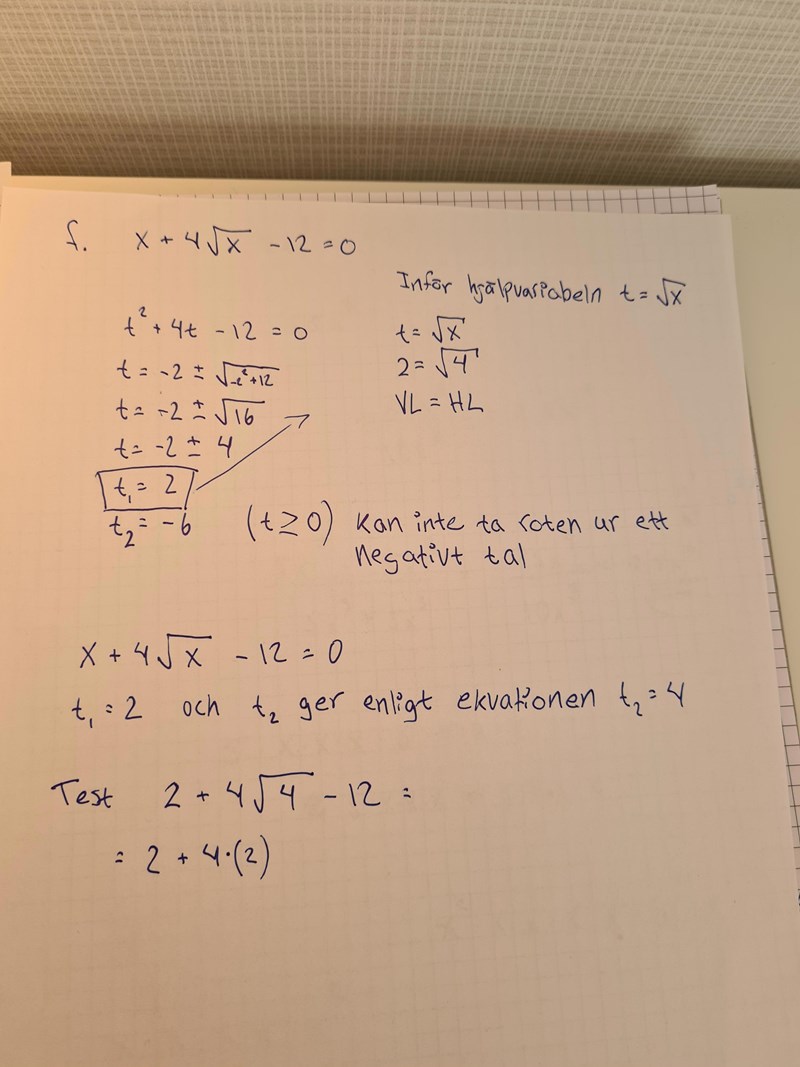 f. x + 4√x - 12 = 0
Inför hjälpvariabeln t = √x
t² + 4t - 12 = 0
t = -2 ± √-2²+12
t = -2 ± √16
t = -2 ± 4
t₁ = 2
t₂ = -6
t = √x
2 = √4
VL = HL
(t ≥ 0) Kan inte ta roten ur ett
negativt tal
x + 4√x - 12 = 0
t₁ = 2 och t₂ ger enligt ekvationen t₂ = 4
Test 2 + 4√4 - 12 =
= 2 + 4·(2)